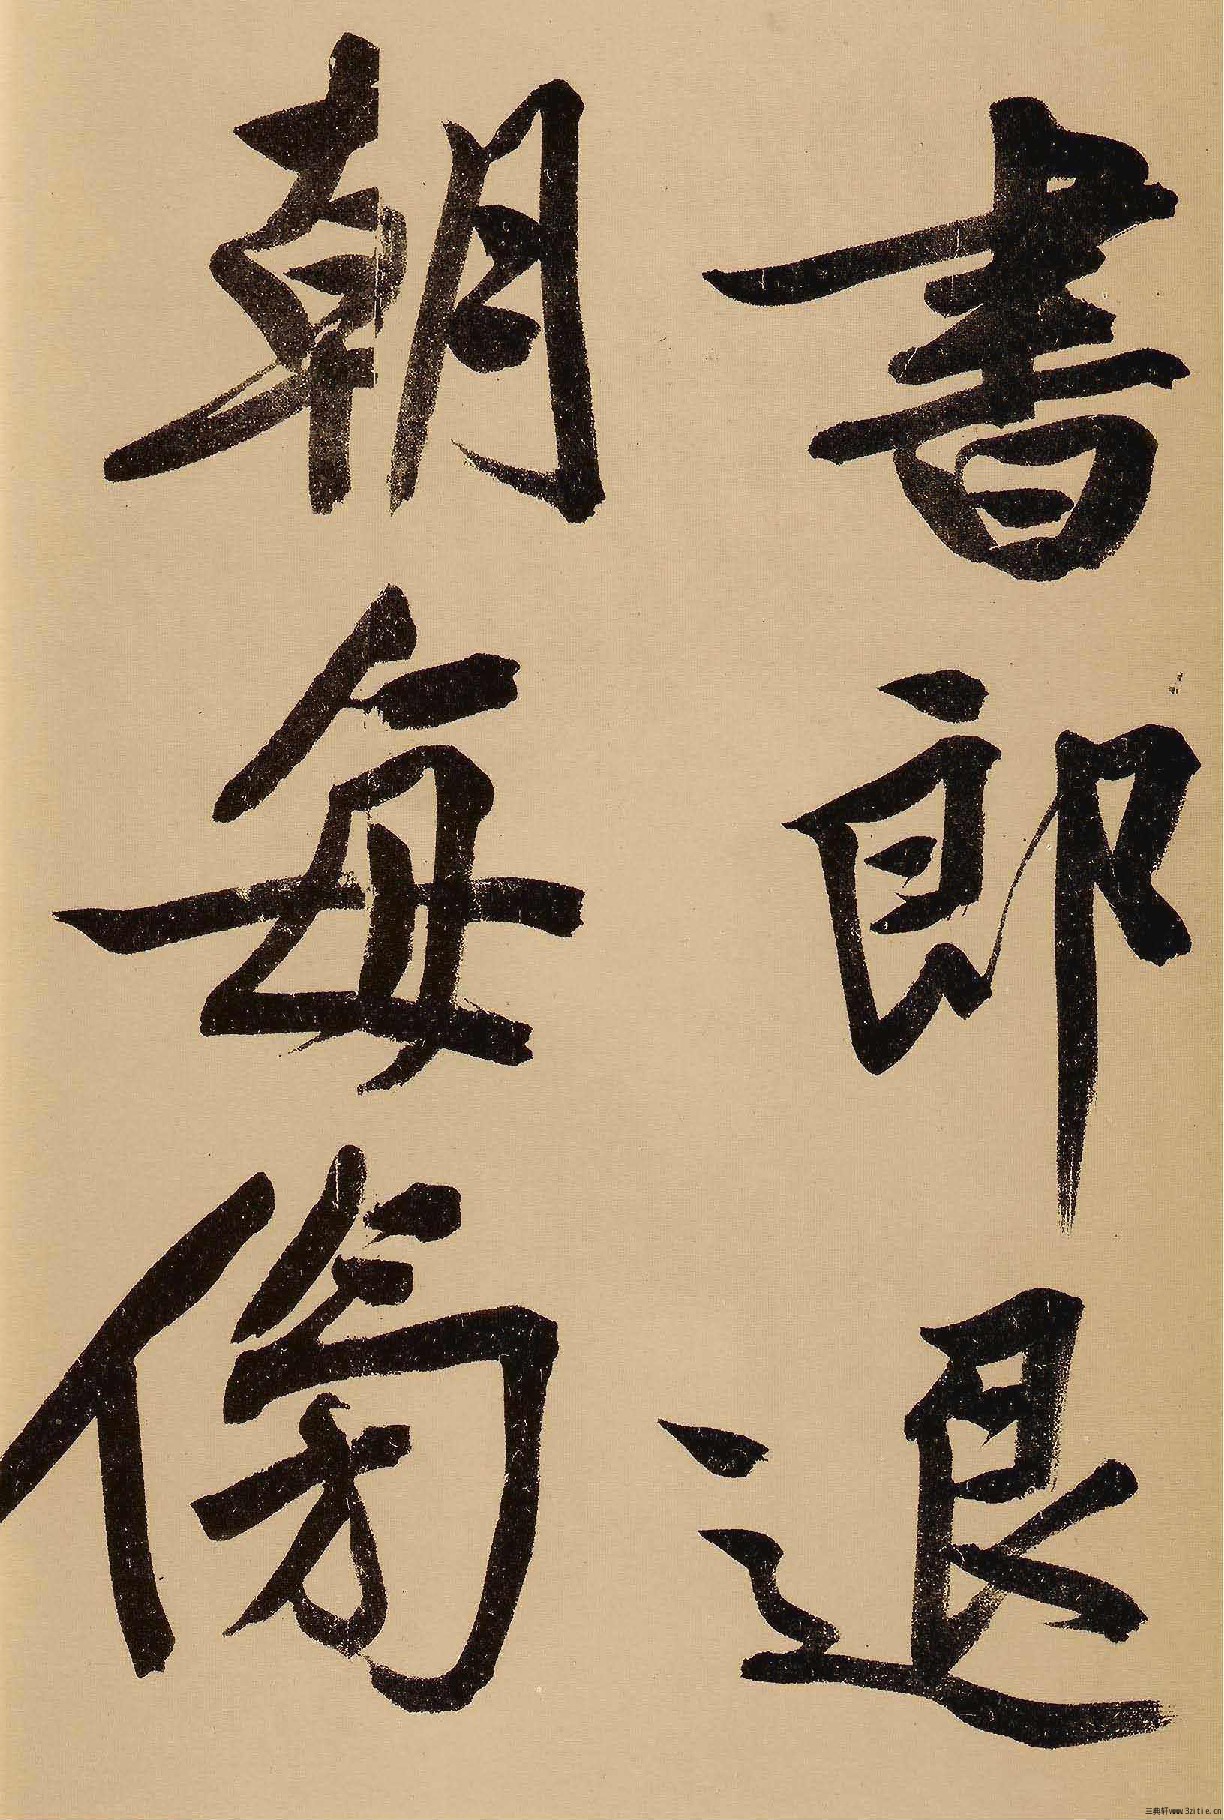 書郎退
朝每傍
三典轩www.3zitie.cn